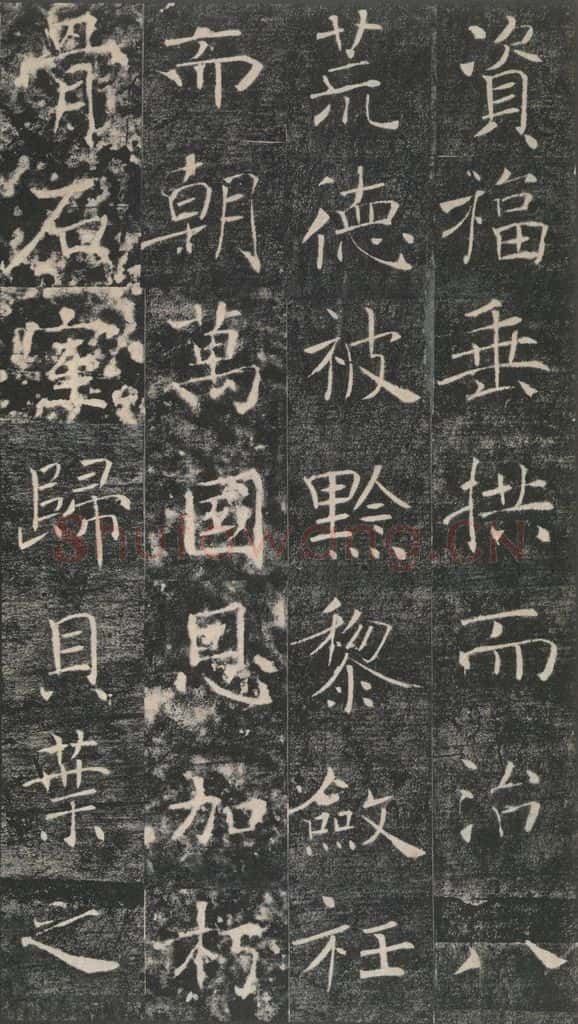 資福垂拱而治八
荒德被黔黎斂衽
而朝萬國恩加朽
骨石室歸貝葉之
Shufawang.CN